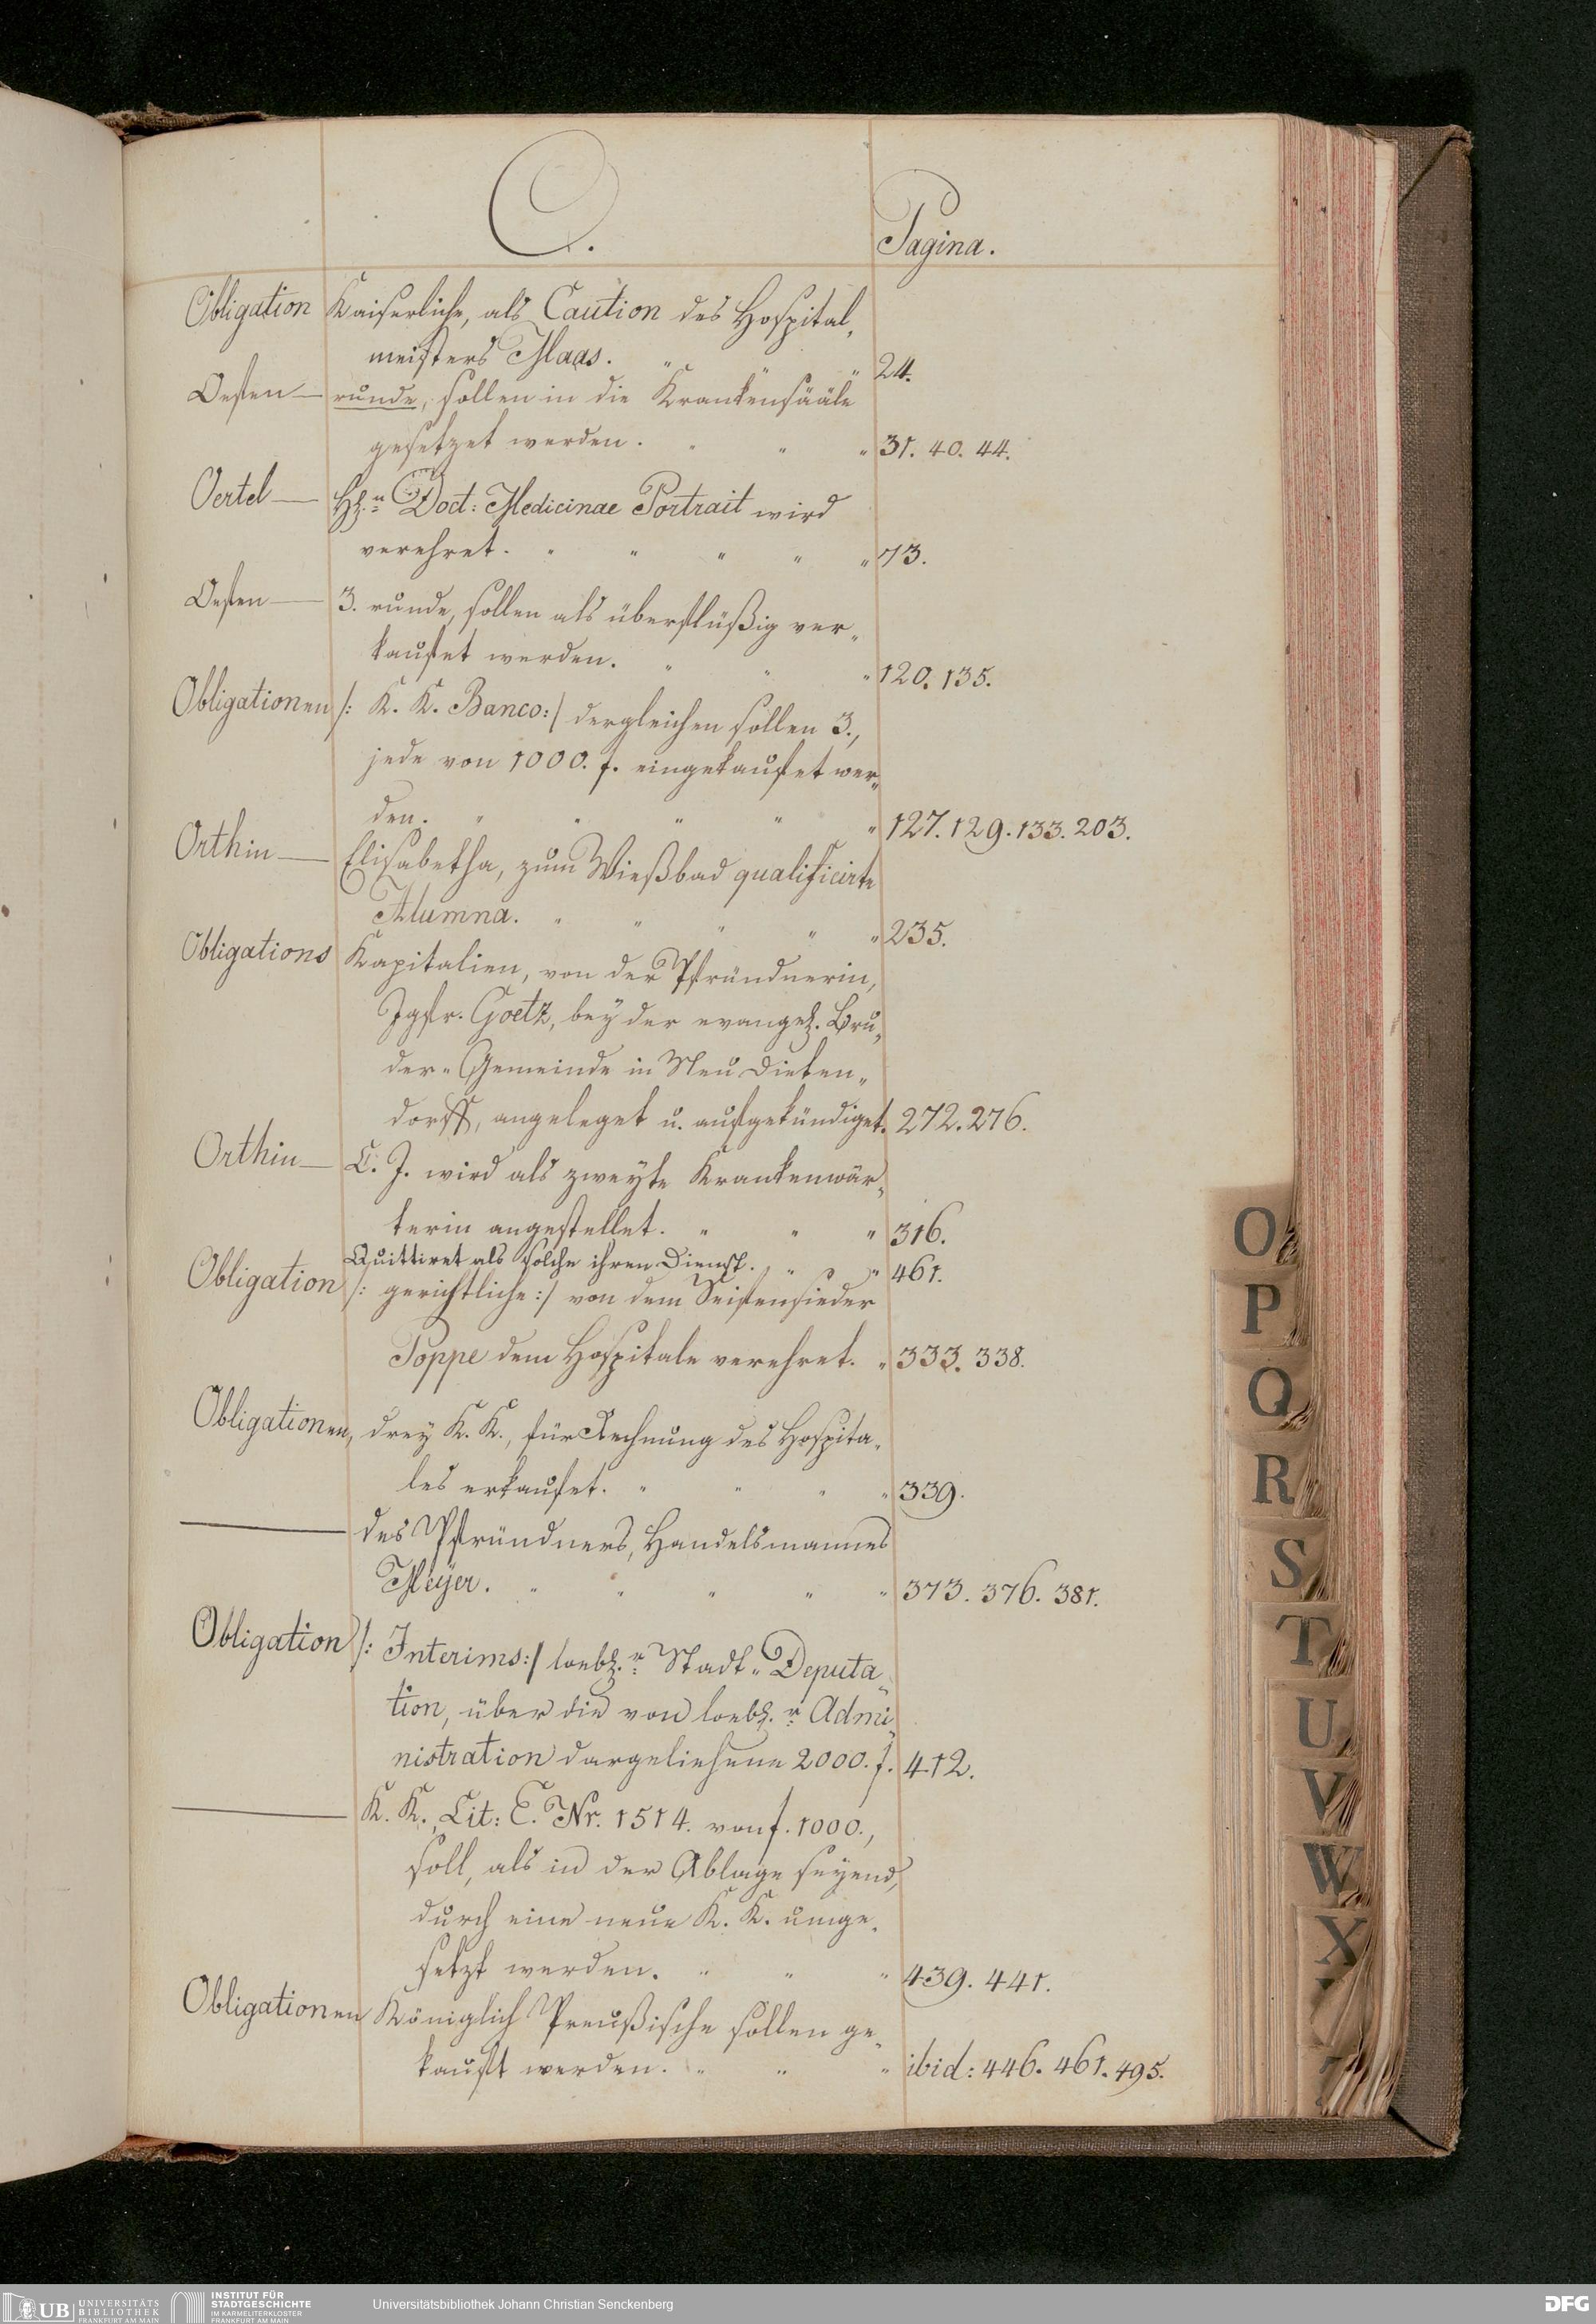 O.
Pagina.
Obligation Kaiserliche, als Caution des Hospital„
meisters Maas. „ „ „ 24.
Oefen — runde, sollen in die Krankensääle
gesetzet werden. „ „ „ 31. 40. 44.
Oertel — Doct: Medicinae Portrait wird
verehret. „ „ „ „ „ 73.
Oefen — 3. runde, sollen als überflüßig ver„
kaufet werden. „ „ „ 120. 135.
Obligationen /: K. K. Banco:/ dergleichen sollen 3.,
jede von 1000. f. eingekaufet wer„
den. „ „ „ „ „ 127. 129. 133. 203.
Orthin — Elisabetha, zum Wießbad qualificirte
Alumna. „ „ „ „ „ 235.
Obligations Kapitalien, von der Pfründnerin,
Jgfr. Goetz, bey der evangel. Bru„
der„ Gemeinde in Neu Dieten„
dorff, angeleget u. aufgekündiget. 272. 276.
Orthin — C. J. wird als zweyte Krankenwär„
terin angestellet. „ „ „ 316.
Quittiret als solche ihren Dienst. „ „ „ 461.
Obligation /: gerichtliche:/ von dem Seifensieder
Poppe dem Hospitale verehret. „ 333. 338.
Obligationen, drey K. K., für Rechnung des Hospita„
les erkaufet. „ „ „ „ 339.
— des Pfründners, Handelsmannes
Meÿer. „ „ „ „ „ 373. 376. 381.
Obligation /: Interims:/ loebl.r Stadt„ Deputa„
tion, über die von loebl.r Admi„
nistration dargeliehene 2000. f. 412.
— K. K., Lit: E. Nr. 1514. von f. 1000.,
soll, als in der Ablage seyend,
durch eine neue K. K. umge„
setzt werden. „ „ „ 439. 441.
Obligationen Königlich Preußische sollen ge„
kauft werden. „ „ „ ibid: 446. 461. 495.
O
P
Q
R
S
T
U
V
W
X
UB UNIVERSITÄTS
BIBLIOTHEK
FRANKFURT AM MAIN
INSTITUT FÜR
STADTGESCHICHTE
IM KARMELITERKLOSTER
FRANKFURT AM MAIN
Universitätsbibliothek Johann Christian Senckenberg
DFG